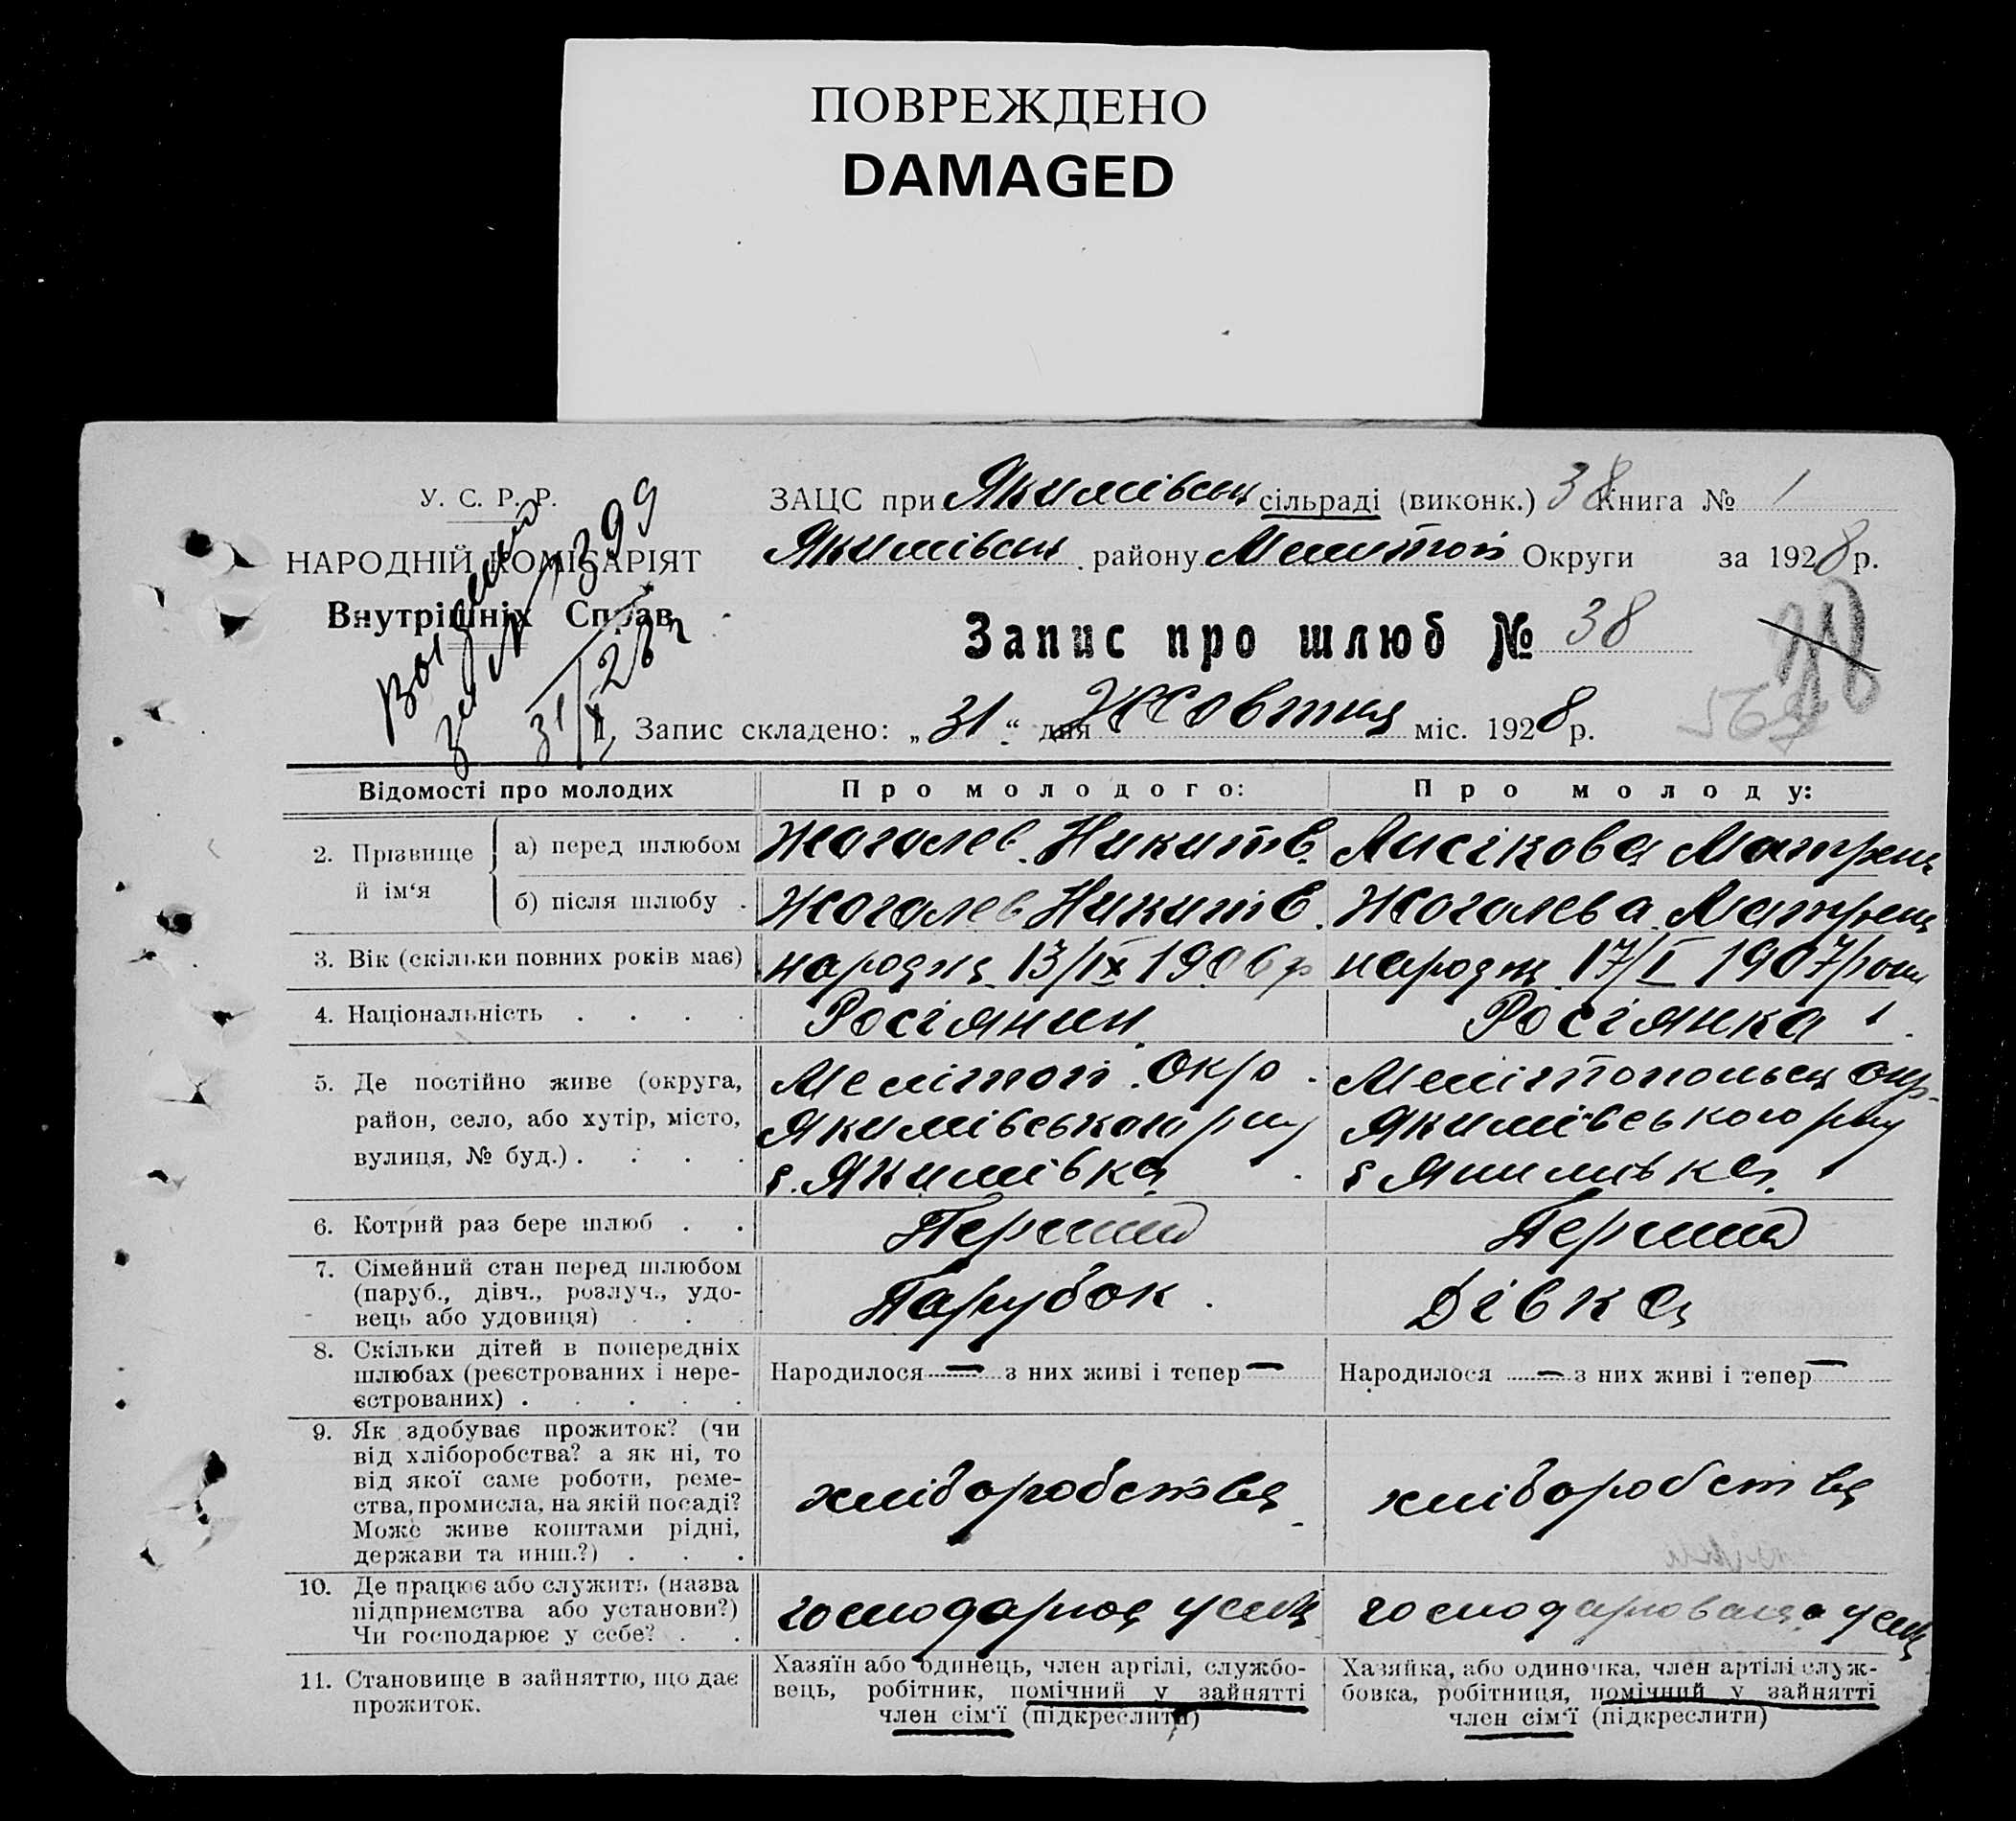 ПОВРЕЖДЕНО
DAMAGED
У. С. Р. Р.
НАРОДНІЙ КОМІСАРІЯТ
Внутрішніх Справ
№ 1399
31/X 28 г
ЗАЦС при Якимівськ сільраді (виконк.) 38 Книга № 1
Якимівськ району Мелитоп Округи за 1928 р.
Запис про шлюб № 38
569
1. Запис складено: „31“ дня Жовтня міс. 1928 р.
Відомості про молодих
Про молодого:
Про молоду:
2. Прізвище й ім‘я
а) перед шлюбом
Жоголев Никита Е.
Лисікова Матрена
б) після шлюбу .
Жоголев Никита Е.
Жоголева Матрена
3. Вік (скільки повних років має)
народж 13/IX 1906 р
народж 17/I 1907 роки
4. Національність . . . .
Росіянин
Росіянка
5. Де постійно живе (округа,
район, село, або хутір, місто,
вулиця, № буд.) . . . .
Мелітоп. Окр.
Якимівського р-ну
с. Якимівка
Мелітопольськ окр.
Якимівського р-ну
с Якимівка
6. Котрий раз бере шлюб . .
Перший
Перший
7. Сімейний стан перед шлюбом
(паруб., дівч., розлуч., удо-
вець або удовиця) . . .
Парубок.
Дівка
8. Скільки дітей в попередніх
шлюбах (реєстрованих і нере-
єстрованих) . . . . .
Народилося — з них живі і тепер —
Народилося — з них живі і тепер —
9. Як здобуває прожиток? (чи
від хліборобства? а як ні, то
від якої саме роботи, реме-
ства, промисла, на якій посаді?
Може живе коштами рідні,
держави та инш.?) . . .
хліборобства
хліборобства
10. Де працює або служить (назва
підприємства або установи?)
Чи господарює у себе? . .
господарює
11. Становище в зайняттю, що дає
прожиток.
Хазяїн або одинець, член артілі, службо-
вець, робітник, помічний у зайнятті
член сім‘ї (підкреслити)
Хазяйка, або одиночка, член артілі служ-
бовка, робітниця, помічний у зайнятті
член сім‘ї (підкреслити)